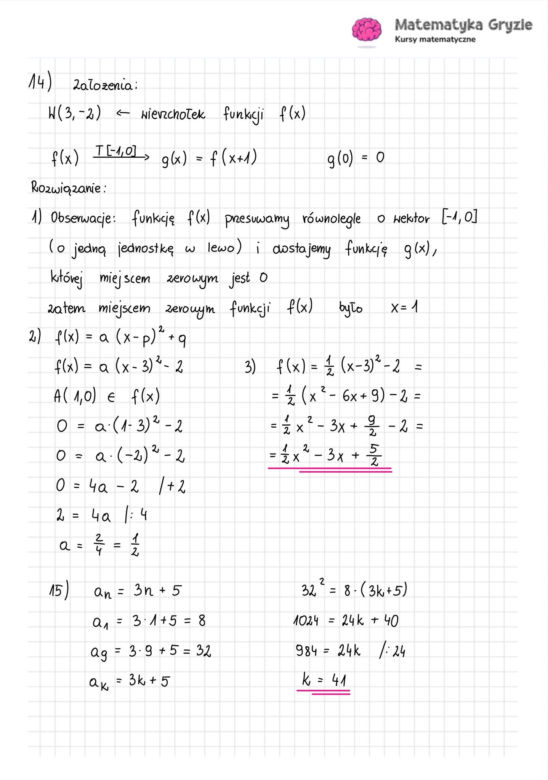 Matematyka Gryzie
Kursy matematyczne
14) Założenia:
W(3,-2) ← wierzchołek funkcji f(x)
f(x) T[-1,0]→ g(x) = f(x+1) g(0) = 0
Rozwiązanie:
1) Obserwacje: funkcję f(x) przesuwamy równolegle o wektor [-1,0]
(o jedną jednostkę w lewo) i dostajemy funkcję g(x),
której miejscem zerowym jest 0
zatem miejscem zerowym funkcji f(x) było x=1
2) f(x) = a (x-p)² + q
f(x) = a (x-3)² - 2
A(1,0) ∈ f(x)
0 = a·(1-3)² - 2
0 = a·(-2)² - 2
0 = 4a - 2 /+2
2 = 4a /:4
a = 2/4 = 1/2
3) f(x) = 1/2 (x-3)² - 2 =
= 1/2 (x² - 6x + 9) - 2 =
= 1/2 x² - 3x + 9/2 - 2 =
= 1/2 x² - 3x + 5/2
15) an = 3n + 5
a₁ = 3·1+5 = 8
a₉ = 3·9 + 5 = 32
aₖ = 3k + 5
32² = 8·(3k+5)
1024 = 24k + 40
984 = 24k /:24
k = 41